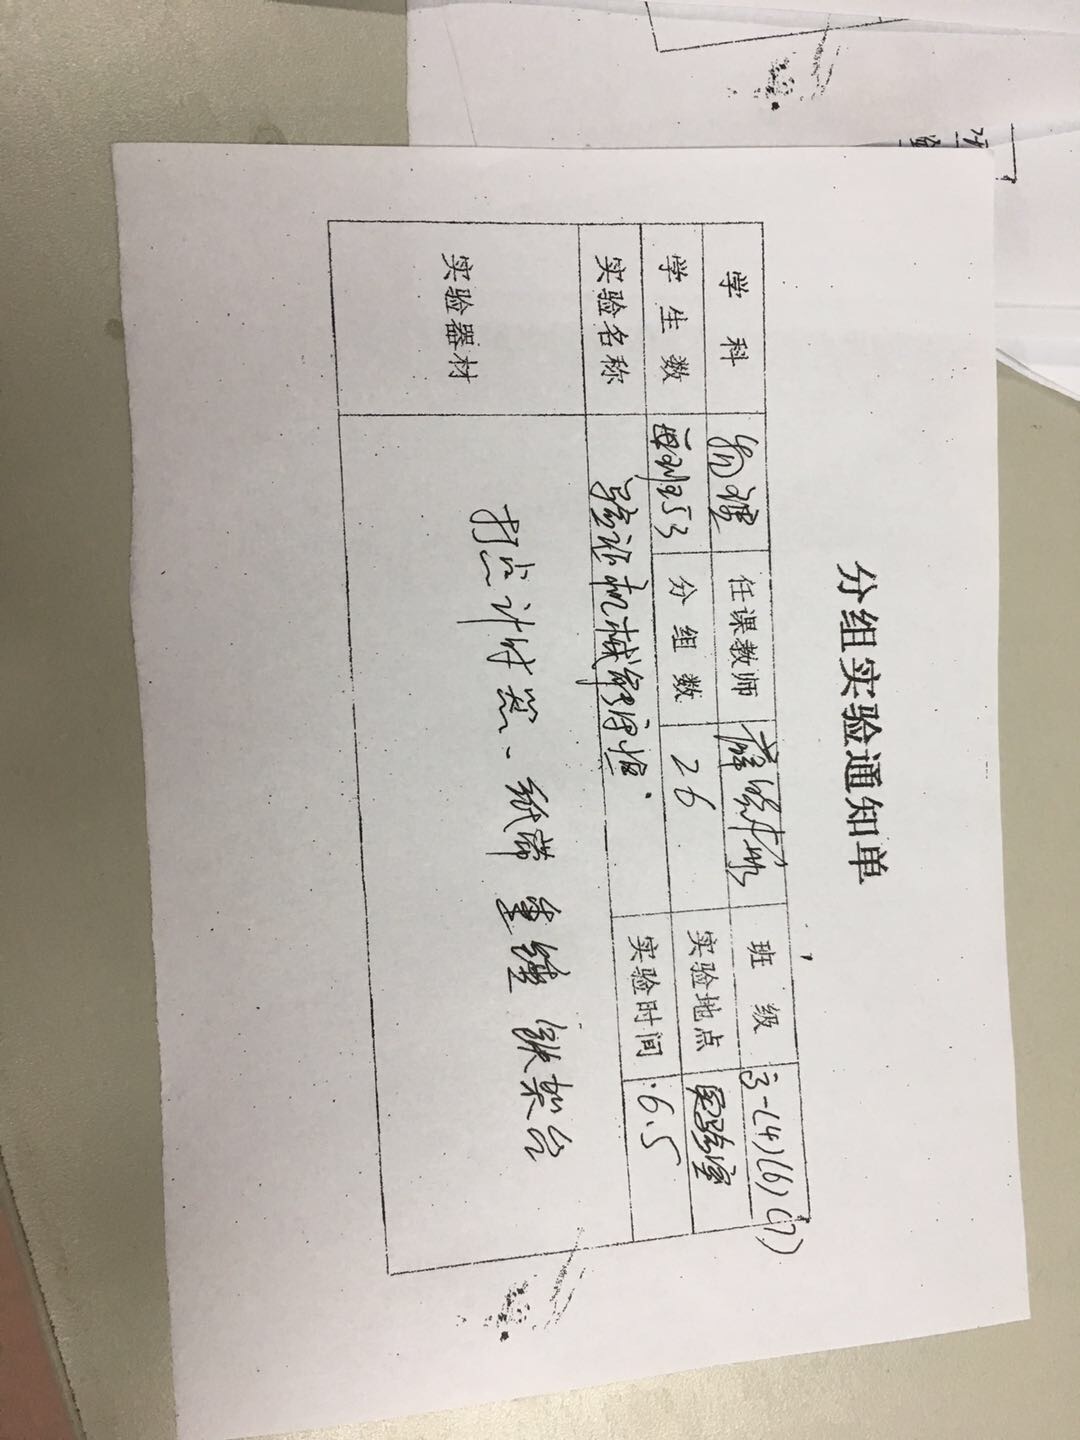 分组实验通知单
学科 物理 任课教师 班级 高一(4)(6)(7)
学生数 每班53 分组数 26 实验地点 实验室
实验名称 验证机械能守恒. 实验时间 6.5
实验器材 打点计时器、纸带 重锤 铁架台